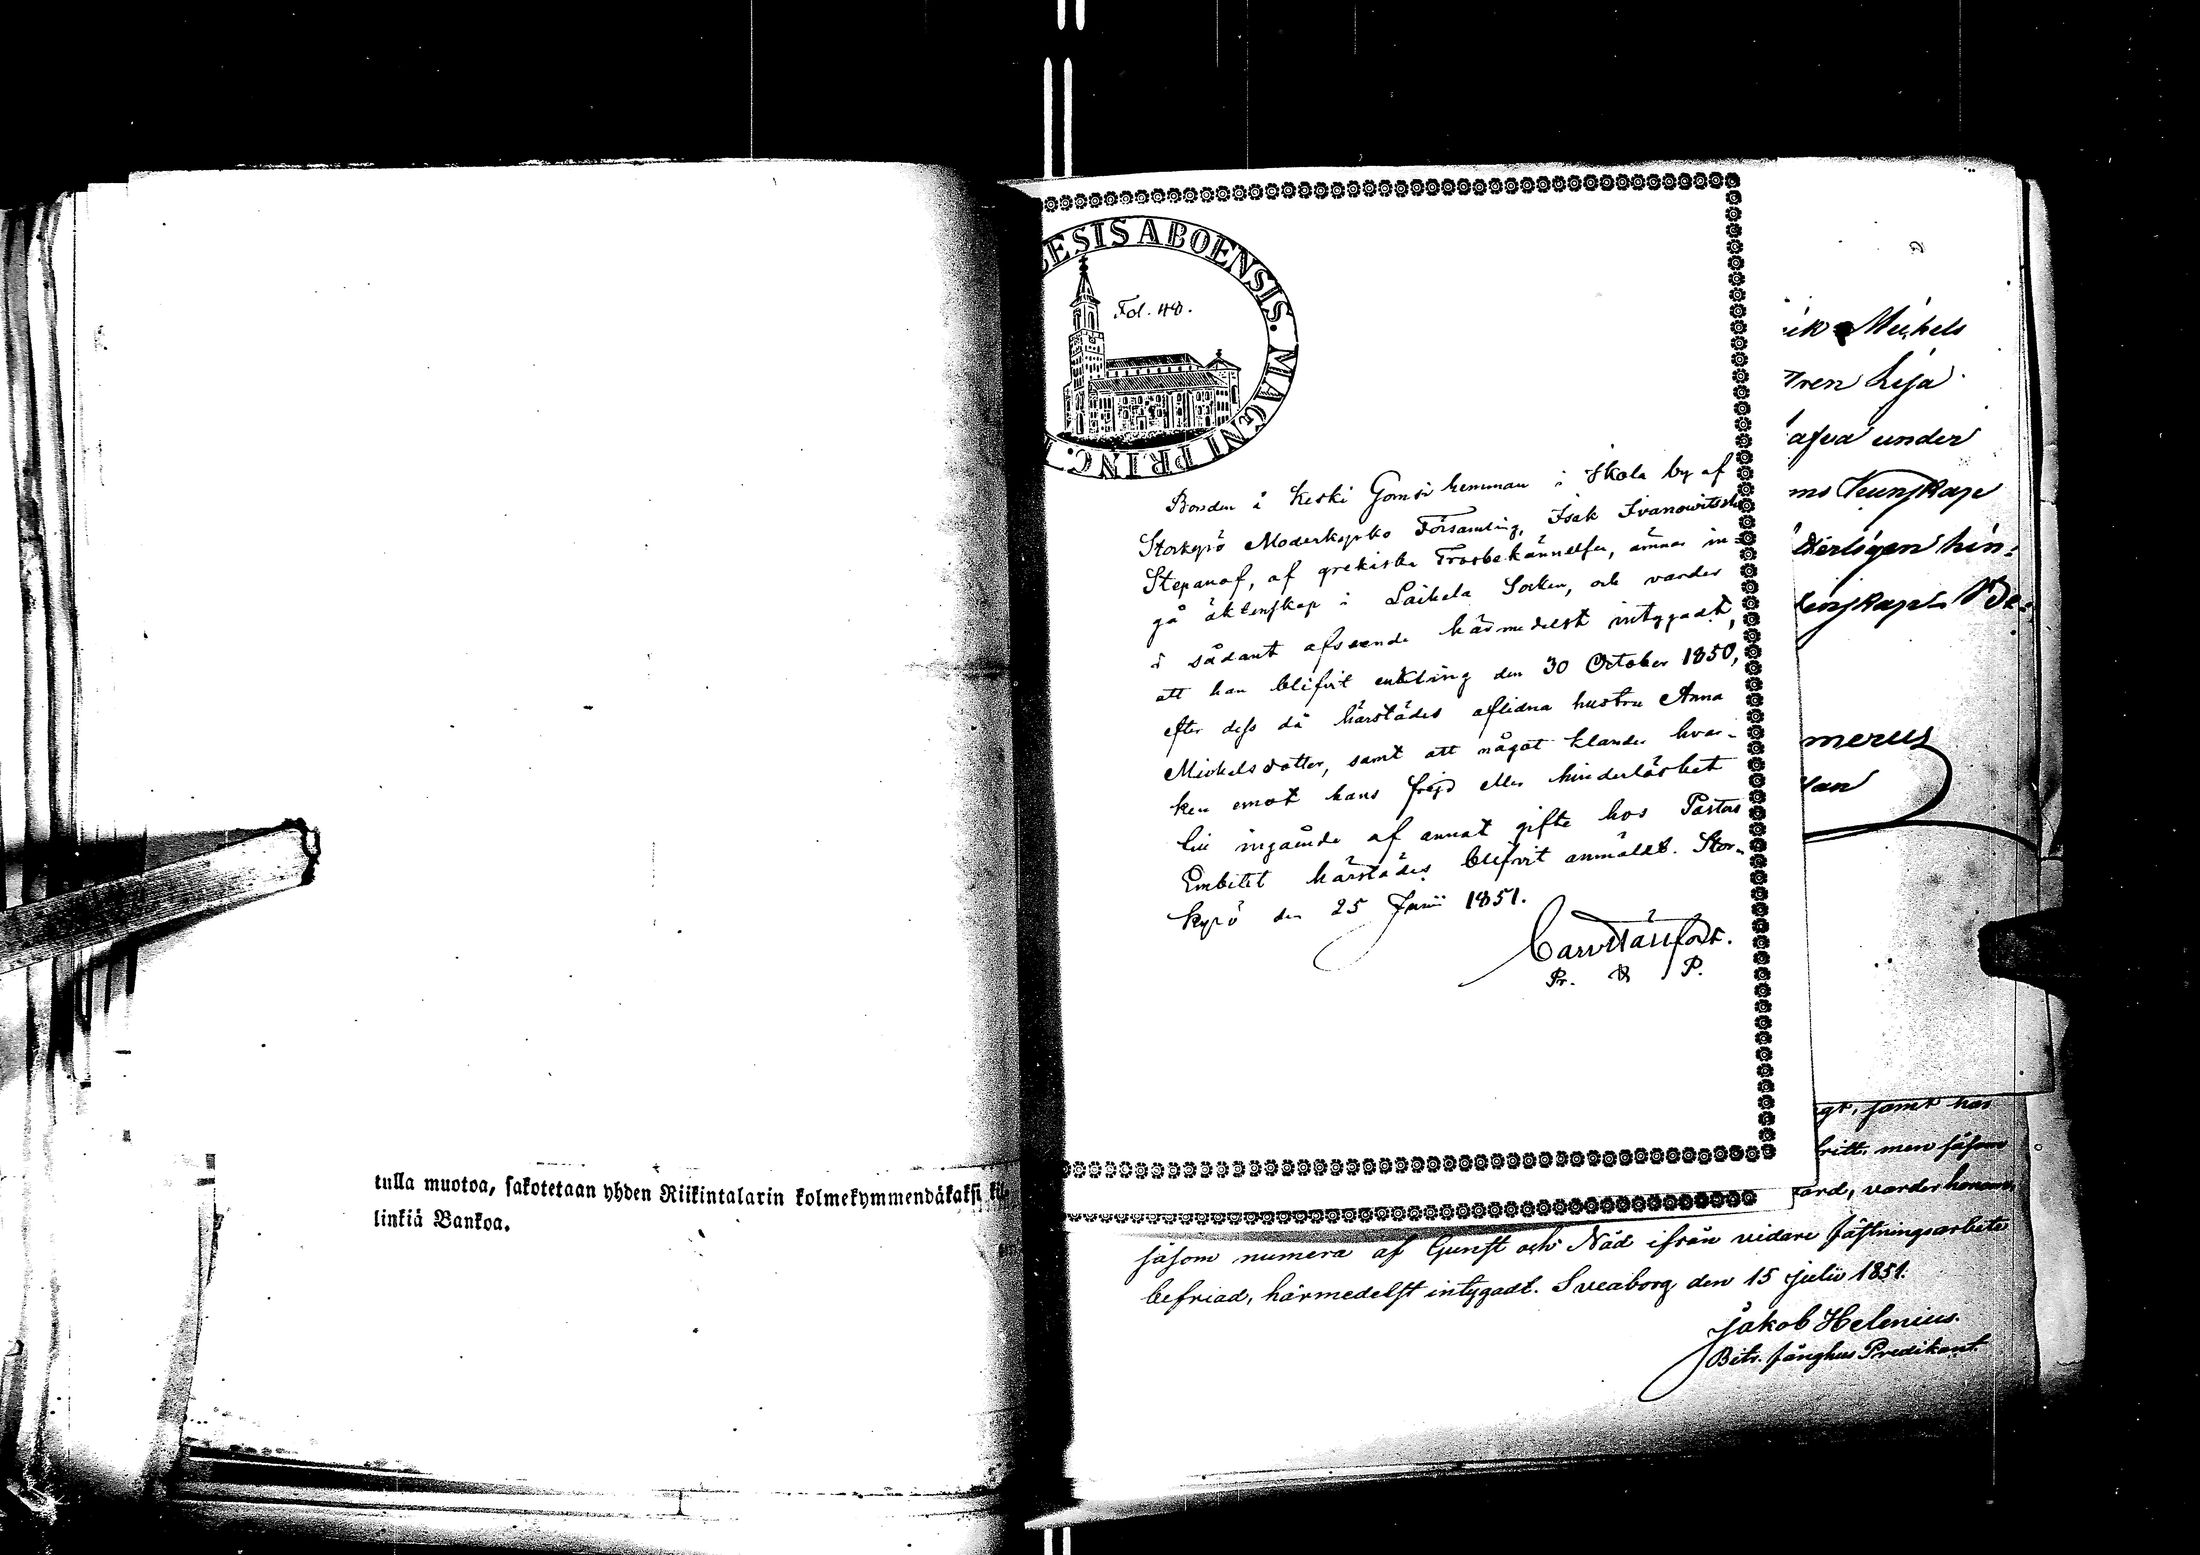 tulla muotoa, sakotetaan yhden Riikintalarin kolmekymmendäkaksi kil-
linkiä Bankoa.
ESIS ABOENSIS. MAGNI PRINC.
Fol. 48.
Bonden å Keski Gomsi hemman i Ikola by af
Storkyrö Moderkyrko Församling, Isak Ivanowitsch
Stepanof, af grekiska Trosbekännelsen, ämnar in-
gå äktenskap i Laihela Socken, och varder
i sådant afseende härmedelst intygadt,
att han blifvit enkling den 30 October 1850,
efter dess då härstädes aflidna hustru Anna
Mickelsdotter, samt att något klander hvar-
ken emot hans frejd eller hinderlöshet
till ingående af annat gifte hos Pastors
Embetet härstädes blifvit anmäldt. Stor-
kyrö den 25 Junii 1851.
Pr. & P.
Mickels
Lisa
under
kunskap
hin-
merus
samt har
men såsom
varder honom,
såsom numera af Gunst och Nåd ifrån vidare fästningsarbete
befriad, härmedelst intygadt. Sveaborg den 15 Julii 1851.
Jakob Helenius.
Bitr. fånghus Predikant.